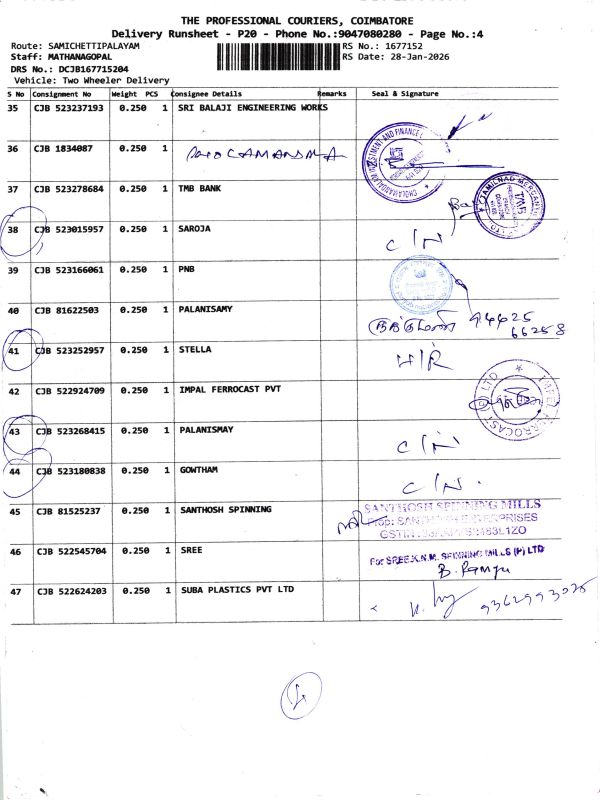 THE PROFESSIONAL COURIERS, COIMBATORE
Delivery Runsheet - P20 - Phone No.:9047080280 - Page No.:4
Route: SAMICHETTIPALAYAM RS No.: 1677152
Staff: MATHANAGOPAL RS Date: 28-Jan-2026
DRS No.: DCJB167715204
Vehicle: Two Wheeler Delivery
S No Consignment No Weight PCS Consignee Details Remarks Seal & Signature
35 CJB 523237193 0.250 1 SRI BALAJI ENGINEERING WORKS
36 CJB 1834087 0.250 1
37 CJB 523278684 0.250 1 TMB BANK
TAMILNAD MERCANTILE
TMB
38 CJB 523015957 0.250 1 SAROJA C/N
39 CJB 523166061 0.250 1 PNB
40 CJB 81622503 0.250 1 PALANISAMY 94425
66258
41 CJB 523252957 0.250 1 STELLA
42 CJB 522924709 0.250 1 IMPAL FERROCAST PVT
43 CJB 523268415 0.250 1 PALANISMAY C/N
44 CJB 523180838 0.250 1 GOWTHAM C/N.
45 CJB 81525237 0.250 1 SANTHOSH SPINNING SANTHOSH SPINNING MILLS
46 CJB 522545704 0.250 1 SREE For SREE.K.N.M. SPINNING MILLS (P) LTD
47 CJB 522624203 0.250 1 SUBA PLASTICS PVT LTD